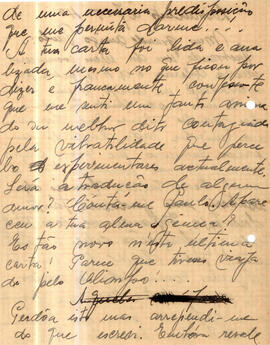 de uma necessaria predisposição
que me permita dar-me...!
A tua carta foi lida e ana
lizada, mesmo no que ficou por
dizer e francamente
que me senti um tanto
do ou melhor dito contagiado
pela vibratilidade que perce
bo experimentares actualmente.
Será a traducção de algum
amor? Conta-me Paulo.
ceu a tua alma gemea?
Estás novo nesta ultima
carta! Parece que tives
do pelo
Aquela
Perdôa isto mas arrependi-me
do que escrevi. Embora revele